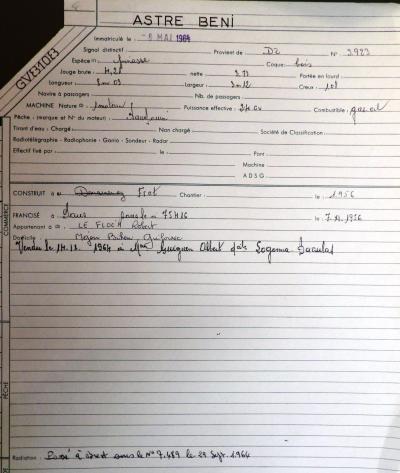 ASTRE BENI
Immatriculé le : -8 MAI 1964
Signal distinctif : Provient de DZ N° 2923
Espèce : Coque : bois
GVE310E3
Jauge brute : 4,21 nette : 2,11 Portée en lourd :
Longueur : Largeur : 2m12 Creux : 1,01
Navire à passagers : Nb. de passagers :
MACHINE Nature : Puissance effective : 24 cv Combustible : gas oil
Pêche : (marque et N° du moteur) : Baudouin
Tirant d'eau : Chargé : Non chargé : Société de Classification :
Radiotélégraphie - Radiophonie - Gonio - Sondeur - Radar :
Effectif fixé par le : Pont :
Machine :
A D S G :
CONSTRUIT à Fret Chantier : le : 1956
COMMERCE
FRANCISÉ à N° 75416 le 1956
Appartenant à : LE FLOC'H Robert
Domicile :
Vendu le 14.12. 1964 à Albert Logonna Daoulas
PÊCHE
Radiation : Passé à Brest sous le N° 7.489 le 29 Sept. 1964